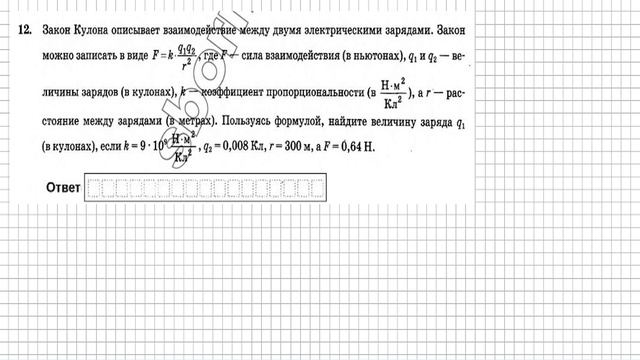 12. Закон Кулона описывает взаимодействие между двумя электрическими зарядами. Закон
можно записать в виде F = k · q₁q₂/r², где F — сила взаимодействия (в ньютонах), q₁ и q₂ — ве-
личины зарядов (в кулонах), k — коэффициент пропорциональности (в Н·м²/Кл²), а r — рас-
стояние между зарядами (в метрах). Пользуясь формулой, найдите величину заряда q₁
(в кулонах), если k = 9 · 10⁹ Н·м²/Кл², q₂ = 0,008 Кл, r = 300 м, а F = 0,64 Н.
Ответ